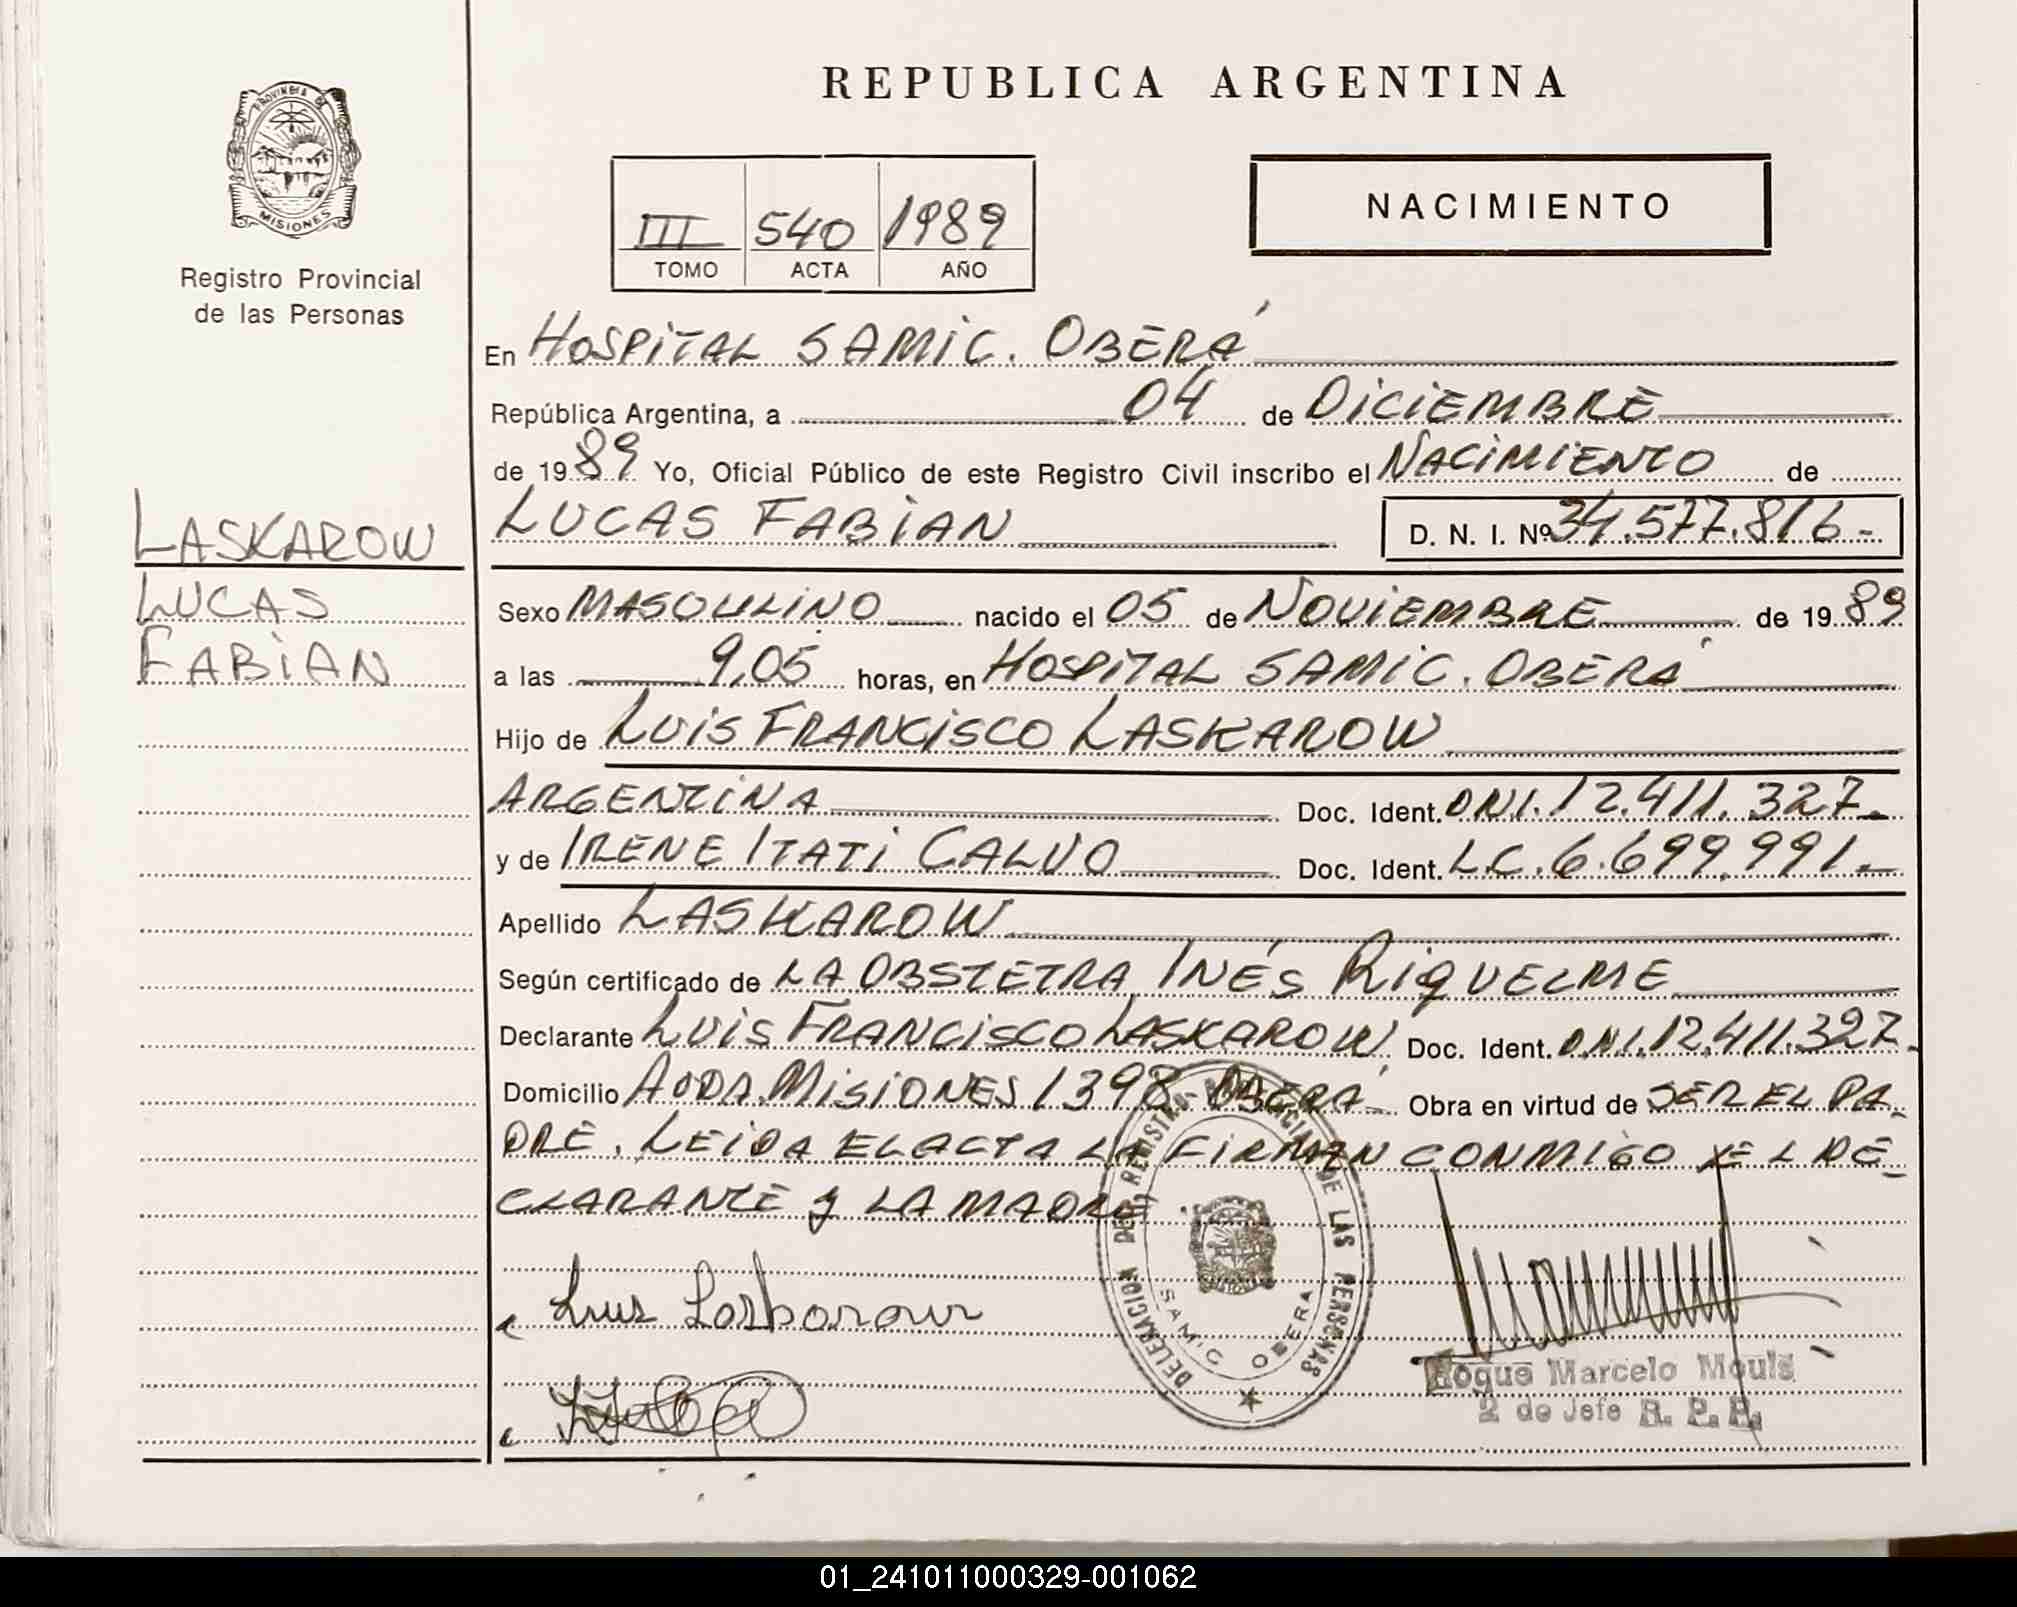 REPUBLICA ARGENTINA
PROVINCIA DE
MISIONES
Registro Provincial
de las Personas
III 540 1989
TOMO ACTA AÑO
NACIMIENTO
En HOSPITAL SAMIC. OBERÁ
República Argentina, a 04 de DICIEMBRE
de 1989 Yo, Oficial Público de este Registro Civil inscribo el NACIMIENTO de
LUCAS FABIAN D. N. I. Nº 34.577.816.-
LASKAROW
LUCAS
FABIAN
Sexo MASCULINO nacido el 05 de NOVIEMBRE de 1989
a las 9,05 horas, en HOSPITAL SAMIC. OBERÁ
Hijo de LUIS FRANCISCO LASKAROW
ARGENTINA Doc. Ident. DNI. 12.411.327.-
y de IRENE ITATI CALVO Doc. Ident. LC. 6.699.991.-
Apellido LASKAROW
Según certificado de LA OBSTETRA INÉS RIQUELME
Declarante LUIS FRANCISCO LASKAROW Doc. Ident. DNI. 12.411.327.
Domicilio AVDA. MISIONES 1398 OBERÁ Obra en virtud de SER EL PA-
DRE. LEIDA EL ACTA LA FIRMAN CONMIGO EL DE-
CLARANTE Y LA MADRE
DELEGACION DEL REGISTRO PROVINCIAL DE LAS PERSONAS
SAMIC OBERA
Luis Laskarow
Roque Marcelo
2 de Jefe R. P. P.
01_241011000329-001062